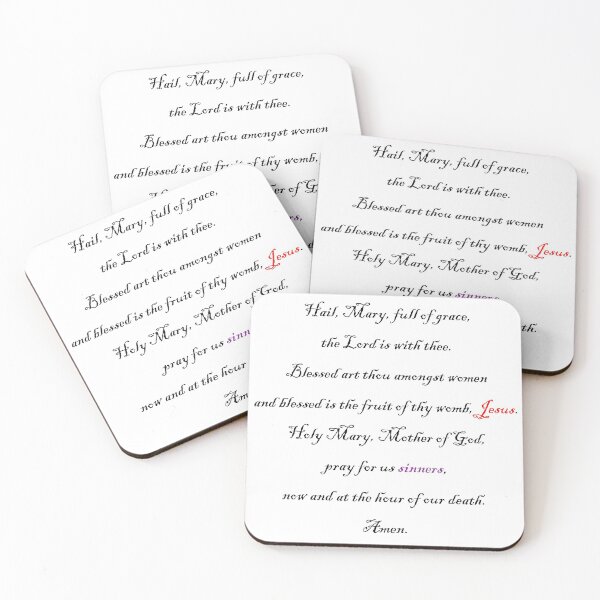 Hail, Mary, full of grace,
the Lord is with thee.
Blessed art thou amongst women
and blessed is the fruit of thy womb,
of God,
Hail, Mary, full of grace,
the Lord is with thee.
Blessed art thou amongst women
and blessed is the fruit of thy womb, Jesus.
Holy Mary, Mother of God,
pray for us sinners,
Hail, Mary, full of grace,
the Lord is with thee.
Blessed art thou amongst women
and blessed is the fruit of thy womb, Jesus.
Holy Mary, Mother of God,
pray for us
now and at the hour
Hail, Mary, full of grace,
the Lord is with thee.
Blessed art thou amongst women
and blessed is the fruit of thy womb, Jesus.
Holy Mary, Mother of God,
pray for us sinners,
now and at the hour of our death.
Amen.